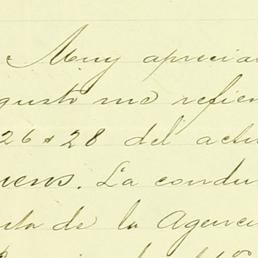 Muy aprecia
gusto me refie
26 & 28 del act
uens. La condu
ta de la Agenc